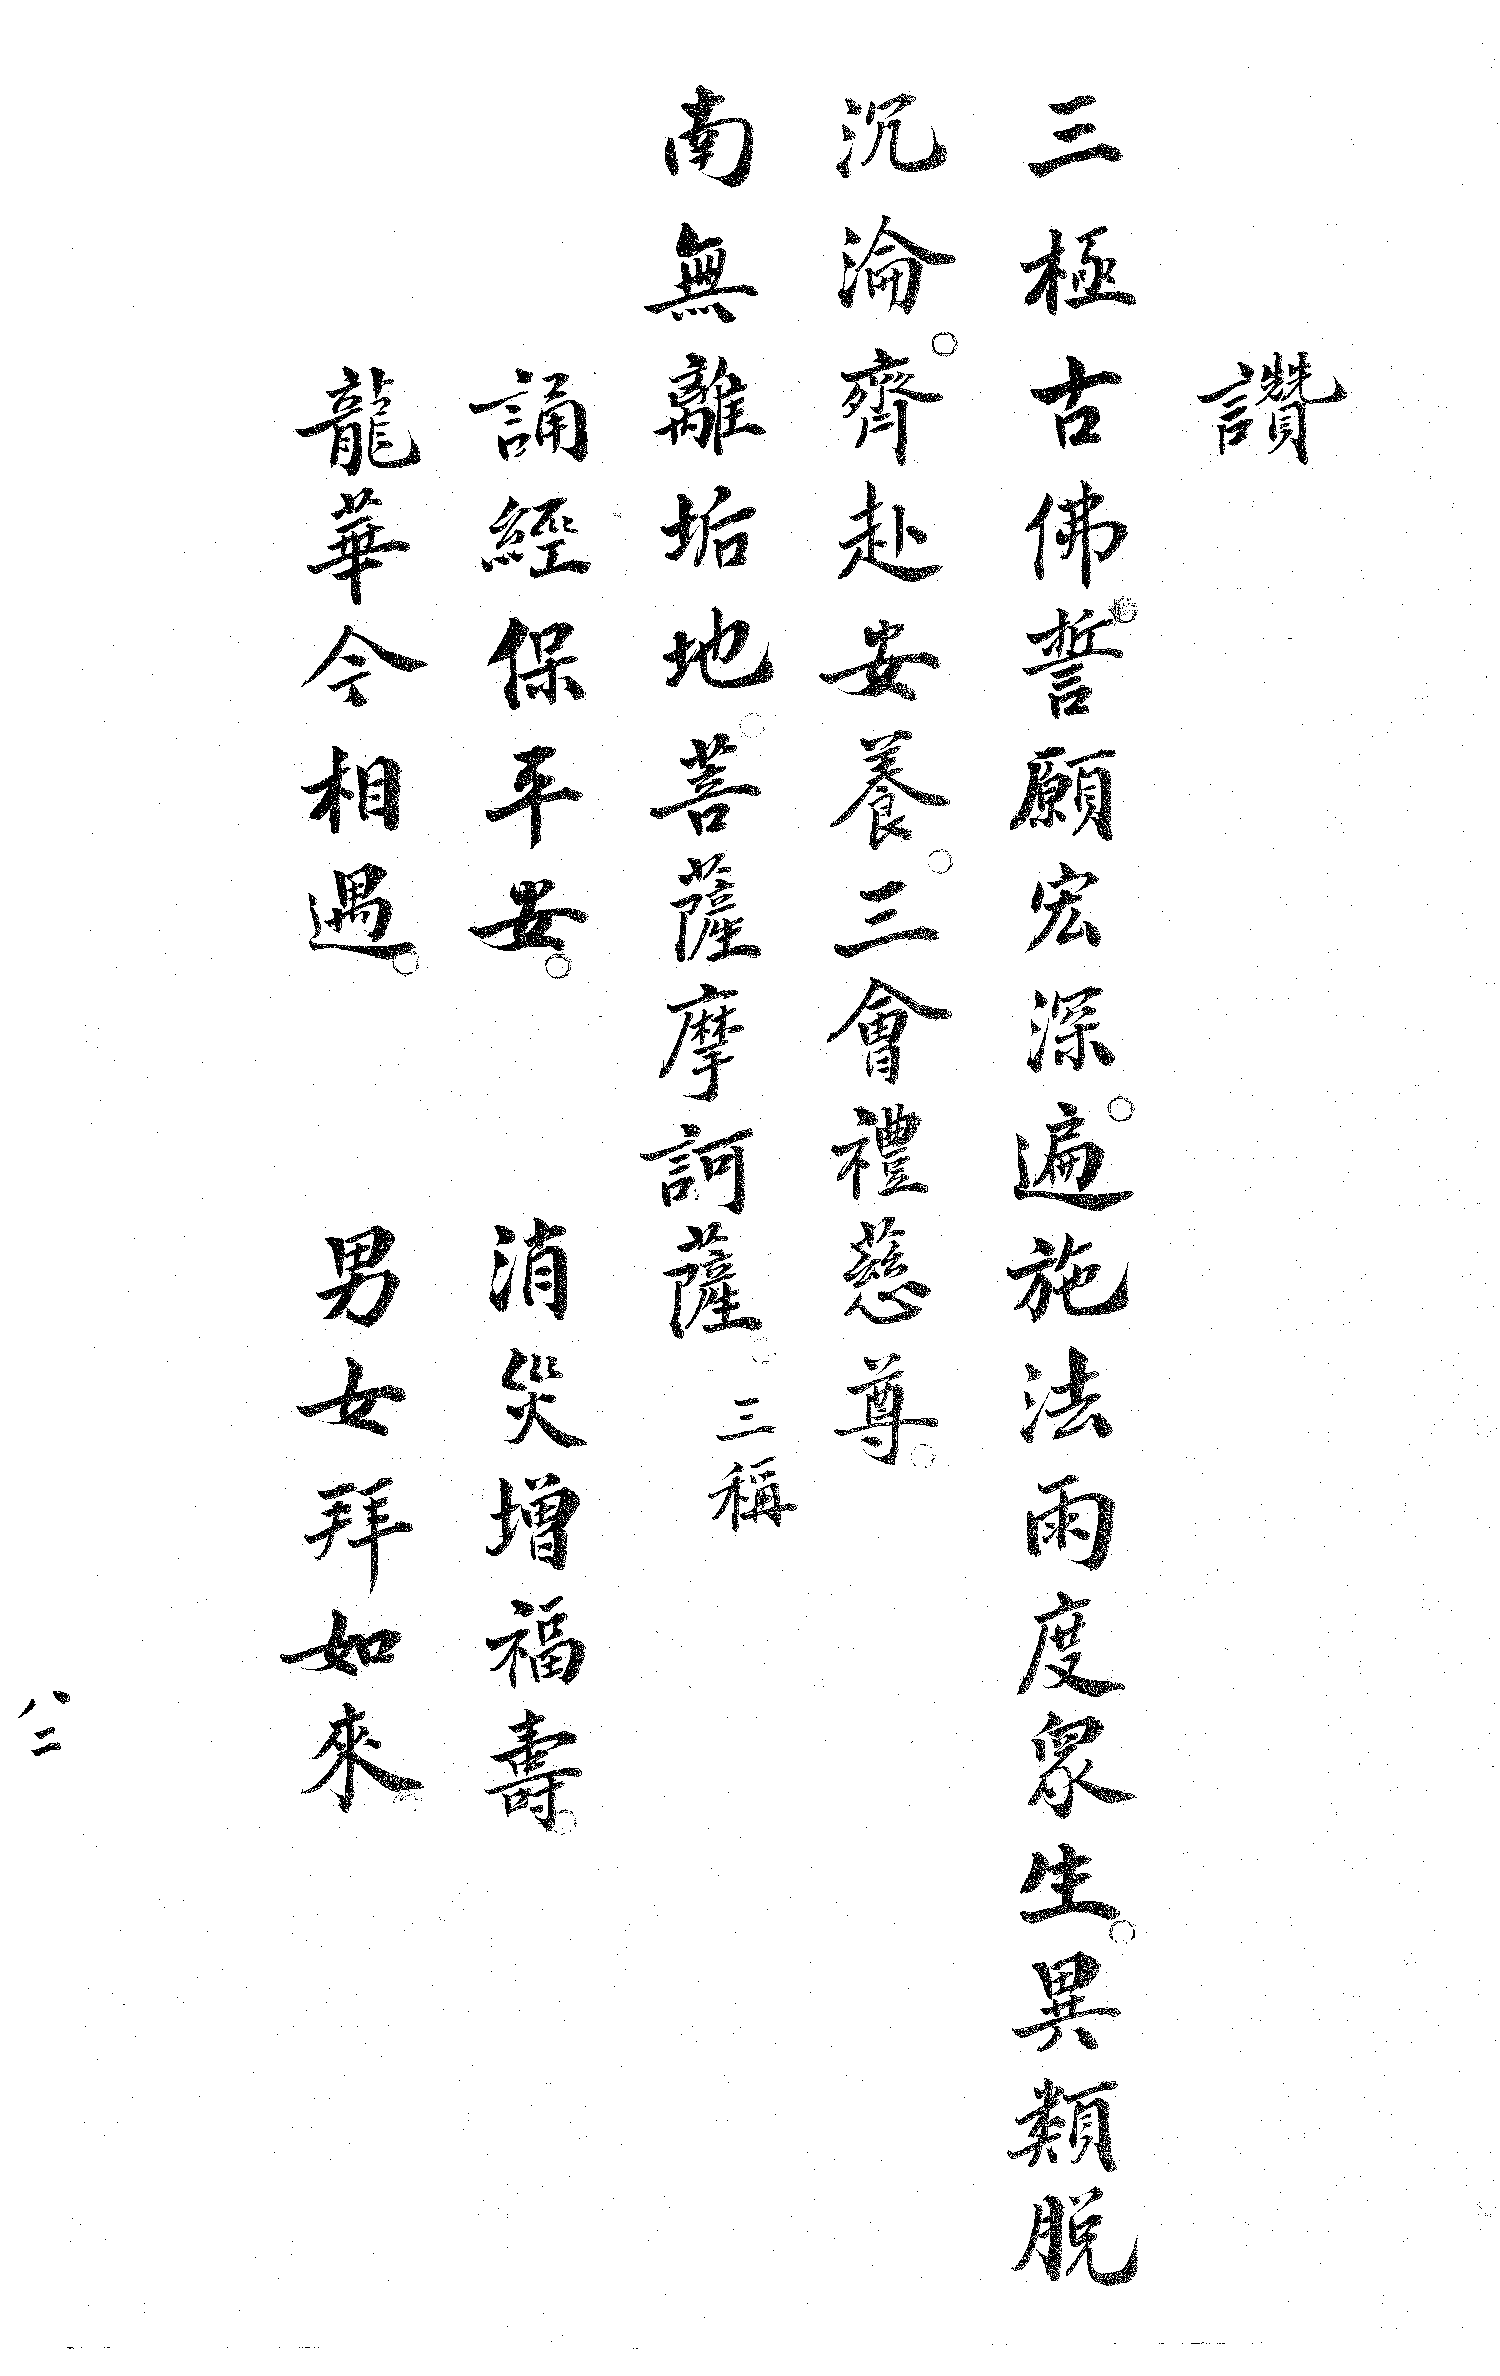 讚
三極古佛。誓願宏深。遍施法雨度眾生。異類脫
沉淪。齊赴安養。三會禮慈尊。
南無離垢地。菩薩摩訶薩。三稱
誦經保平安。消災增福壽。
龍華今相遇。男女拜如來。
八二